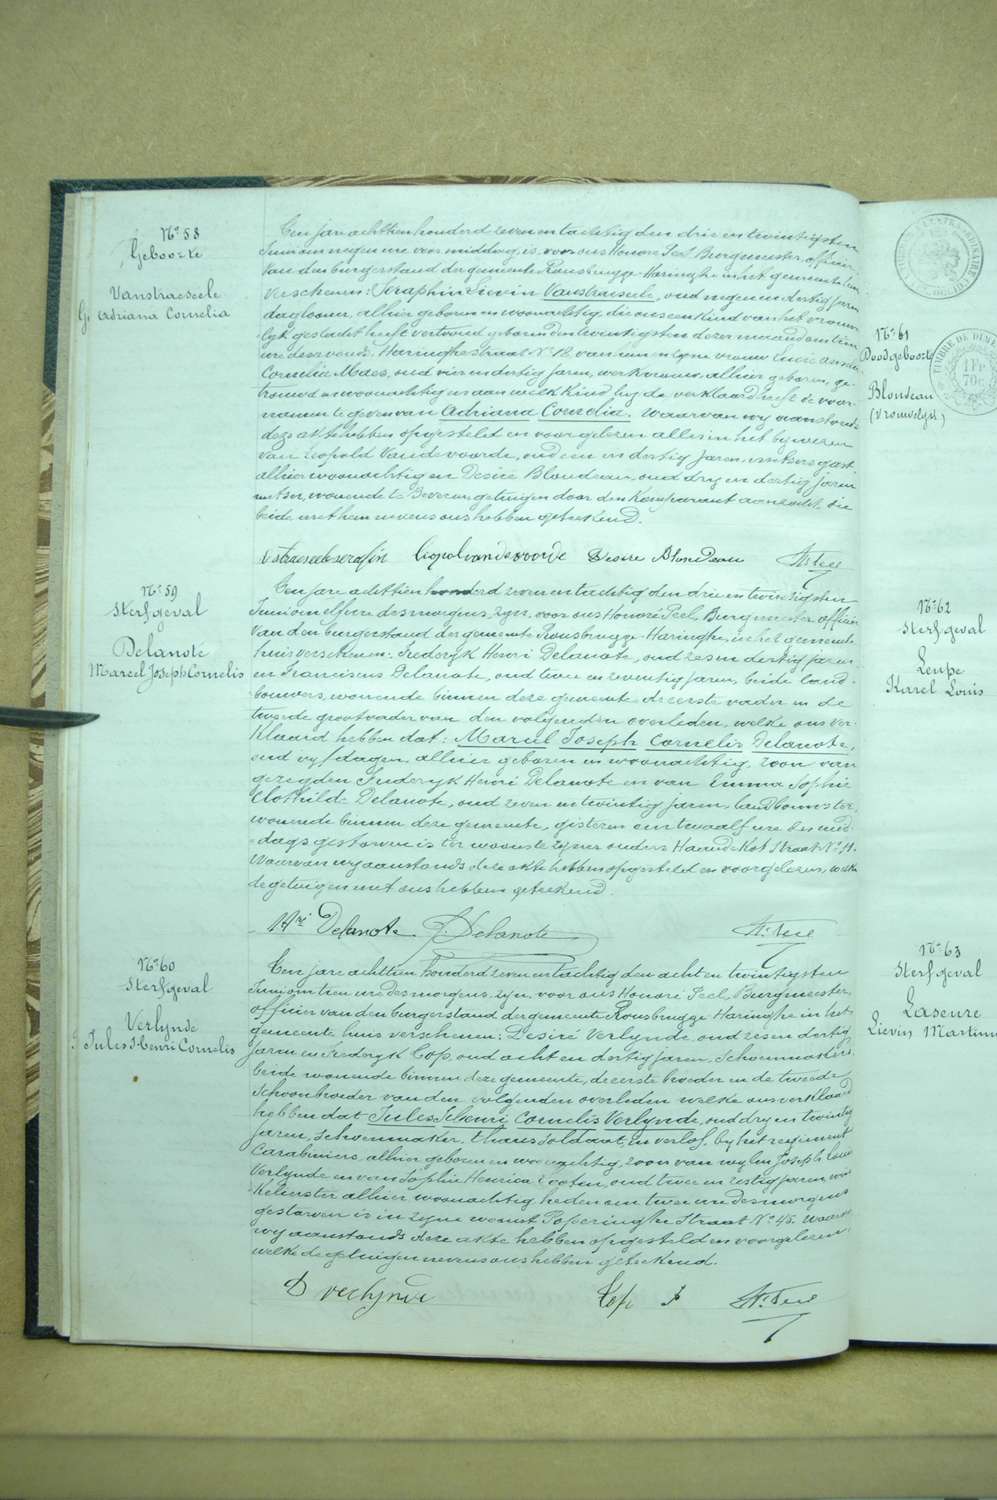 N° 58
Geboorte
Vanstraeseele
Adriana Cornelia
Een jare achttien honderd zeven en tachtig den drie en twintigsten
Juni om negen ure voor middag, is voor ons Honoré Feel, Burgmeester, officier
Van den burgerstand der gemeente Rousbrugge-Haringhe in het gemeentehuis
verschenen: Seraphin Livin Vanstraeseele, oud negen en dertig jaren
daglooner, alhier geboren en woonachtig, die ons een kind van het vrouw-
lyk geslacht heeft vertoond geboren den twintigsten dezer maand om tien
ure des avonds, Haringhestraat N° 18, van hem en zyne vrouw
Cornelia Maes, oud vier en dertig jaren, werkvrouw, alhier geboren, ge-
trouwd en woonachtig en aan welk kind hy de verklaard heeft de voor-
namen te geven van Adriana Cornelia. Waarvan wy aanstonds
deze akte hebben opgesteld en voorgelezen alles in het bywezen
van Leopold Vandevoorde, oud een en dertig jaren,
alhier woonachtig en Desiré Blondeau, oud dry en dertig jaren
wonende te Beveren, getuigen door den komparant aanzocht, die
beide met hem nevens ons hebben geteekend.
vstraeseele serafin Leopol vandevoorde Desire Blondeau Hré Feel
N° 59
Sterfgeval
Delanote
Marcel Joseph Cornelis
Een jare achttien honderd zeven en tachtig den drie en twintigsten
Juni om elf ure des morgens, zyn voor ons Honoré Feel, Burgmeester, officier
Van den burgerstand der gemeente Rousbrugge-Haringhe, in het gemeente
huis verschenen: Frederyk Henri Delanote, oud zes en dertig jaren
en Franciscus Delanote, oud twee en zeventig jaren, beide land-
bouwers, wonende binnen deze gemeente, de eerste vader en de
tweede grootvader van den volgenden overleden, welke ons ver-
klaard hebben dat: Marcel Joseph Cornelis Delanote,
oud vyf dagen, alhier geboren en woonachtig, zoon van
gezegden Frederyk Henri Delanote en van Emma Sophie
Clothilde Delanote, oud zeven en twintig jaren, landbouwster,
wonende binnen deze gemeente, gisteren om twaalf ure des mid-
dags gestorven is ter woonste zyner ouders Haandekot Straat N° 11.
Waarvan wy aanstonds deze akte hebben opgesteld en voorgelezen, welke
de getuigen met ons hebben geteekend.
Hri Delanote F. Delanote Hré Feel
N° 60
Sterfgeval
Verlynde
Jules Henri Cornelis
Een jare achttien honderd zeven en tachtig den acht en twintigsten
Juni om tien ure des morgens, zyn voor ons Honoré Feel, Burgmeester,
officier van den burgerstand der gemeente Rousbrugge-Haringhe in het
gemeente huis verschenen: Desiré Verlynde, oud zes en dertig
jaren en Frederyk Cop, oud acht en dertig jaren, Schoenmakers
beide wonende binnen deze gemeente, de eerste broeder en de tweede
Schoonbroeder van den volgenden overleden welke ons verklaard
hebben dat Jules Henri Cornelis Verlynde, oud dry en twintig
jaren, Schoenmaker, thans Soldaat in verlof by het regiment
Carabiniers, alhier geboren en woonachtig, zoon van wylen Joseph
Verlynde en van Sophie Henrica Looten, oud twee en zestig jaren, win-
kelierster alhier woonachtig, heden om twee ure des morgens
gestorven is in zyne woonst Poperinghe Straat N° 45. Waarvan
wy aanstonds deze akte hebben opgesteld en voorgelezen,
welke de getuigen nevens ons hebben geteekend.
D verlynde Cop F Hré Feel
N° 61
Doodgeboorte
Blondeau
(Vrouwelyk)
TIMBRE DE DIME
1 FR
70 C
N° 62
Sterfgeval
Leupe
Karel Louis
N° 63
Sterfgeval
Laseure
Lievin Martinu